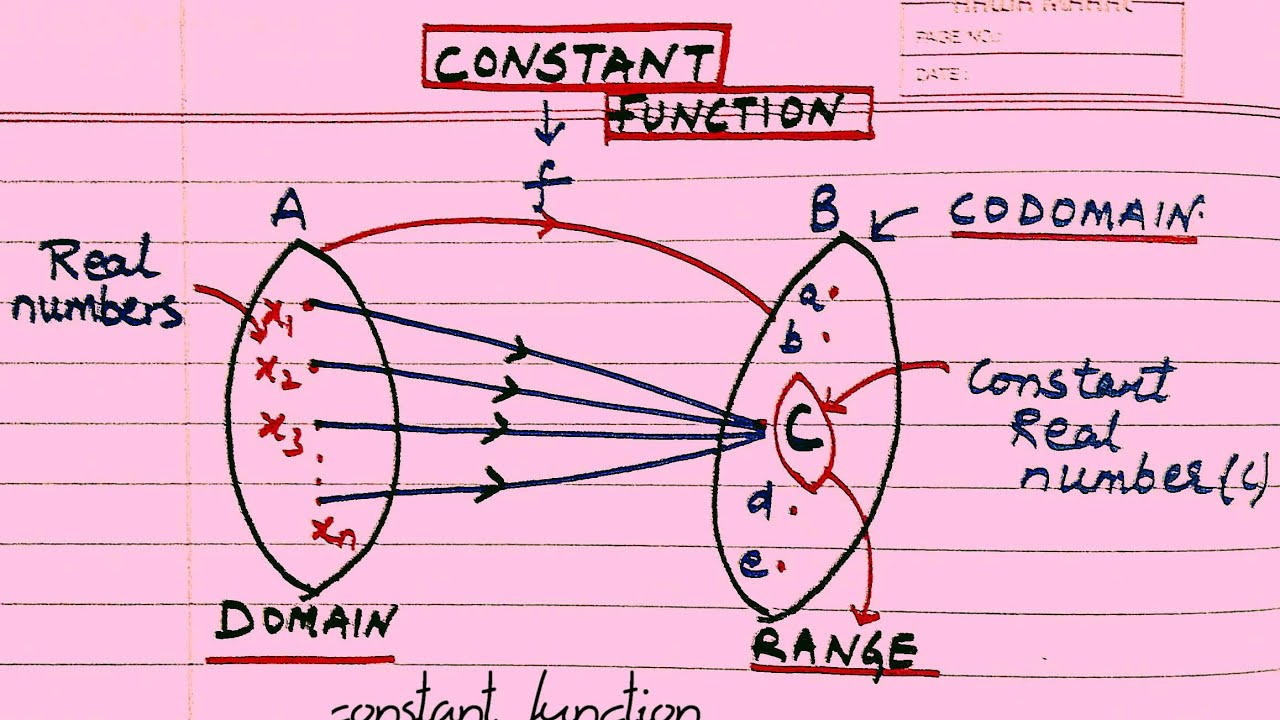 PAGE NO.:
DATE:
CONSTANT
FUNCTION
f
A
B
CODOMAIN.
Real
numbers
x1
x2
x3
xn
a
b
C
d
e
Constant
Real
number (c)
DOMAIN
RANGE
constant function